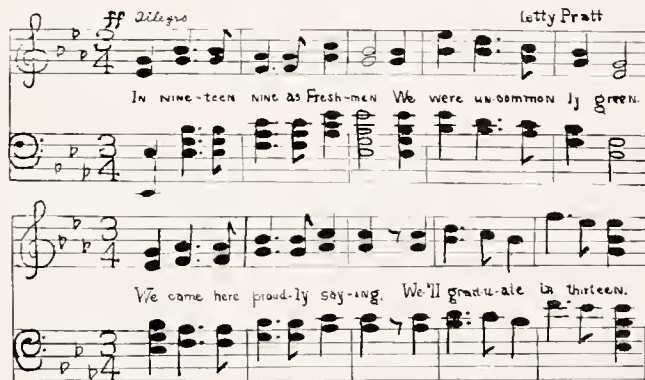 ff Allegro Letty Pratt
3 4
In nine-teen nine as Fresh-men We were un-common ly green.
3 4
3 4
We came here proud-ly say-ing, We'll grad-u-ate in thirteen.
3 4